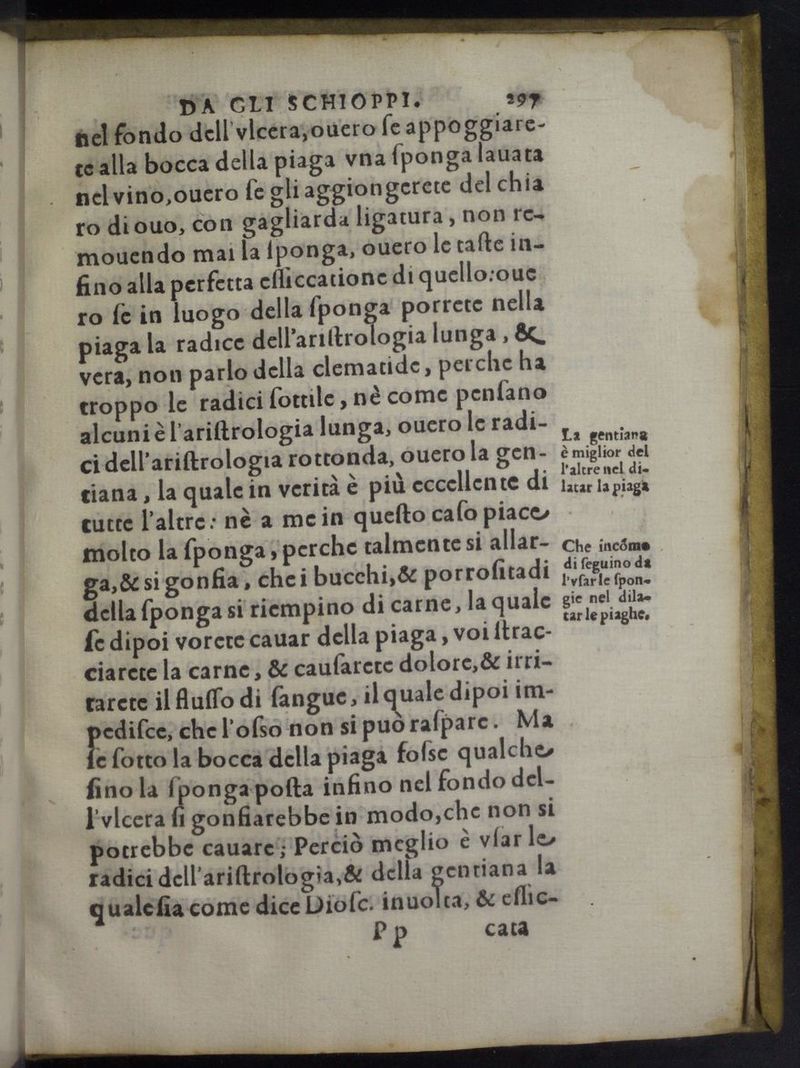 DA GLI SCHIOPPI. 297
nel fondo dell'vlcera,ouero ſe appoggiare-
te alla bocca della piaga vna ſponga lauata
nel vino,ouero ſe gli aggiongerete del chia
ro di ouo, con gagliarda ligatura, non re-
mouendo mai la ſponga, ouero le taſte in-
fino alla perfetta eſſiccatione di quello:oue
ro ſe in luogo della ſponga porrete nella
piaga la radice dell'ariſtrologia lunga, &
vera, non parlo della clematide, perche ha
troppo le radici ſottile, nè come penſano
alcuni è l'ariſtrologia lunga, ouero le radi-
ci dell'ariſtrologia rottonda, ouero la gen-
tiana, la quale in verità è più eccellente di
tutte l'altre: nè a me in queſto caſo piace
molto la ſponga, perche talmente si allar-
ga,& si gonfia, che i bucchi,& porroſitadi
della ſponga si riempino di carne, la quale
ſe dipoi vorete cauar della piaga, voi ſtrac-
ciarete la carne, & cauſarete dolore,& irri-
tarete il fluſſo di ſangue, il quale dipoi im-
pediſce, che l'oſso non si può raſpare. Ma
ſe ſotto la bocca della piaga foſse qualche
ſino la ſponga poſta infino nel fondo del-
l'vlcera ſi gonfiarebbe in modo,che non si
potrebbe cauare; Perciò meglio è vſar le
radici dell'ariſtrologia,& della gentiana la
quale ſia come dice Dioſc. inuolta, & eſſic-
Pp cata
La gentiana
è miglior del
l'altre nel di-
latar la piaga
Che incómo
di ſeguino da
l'vſar le ſpon-
gie nel dila-
tar le piaghe.